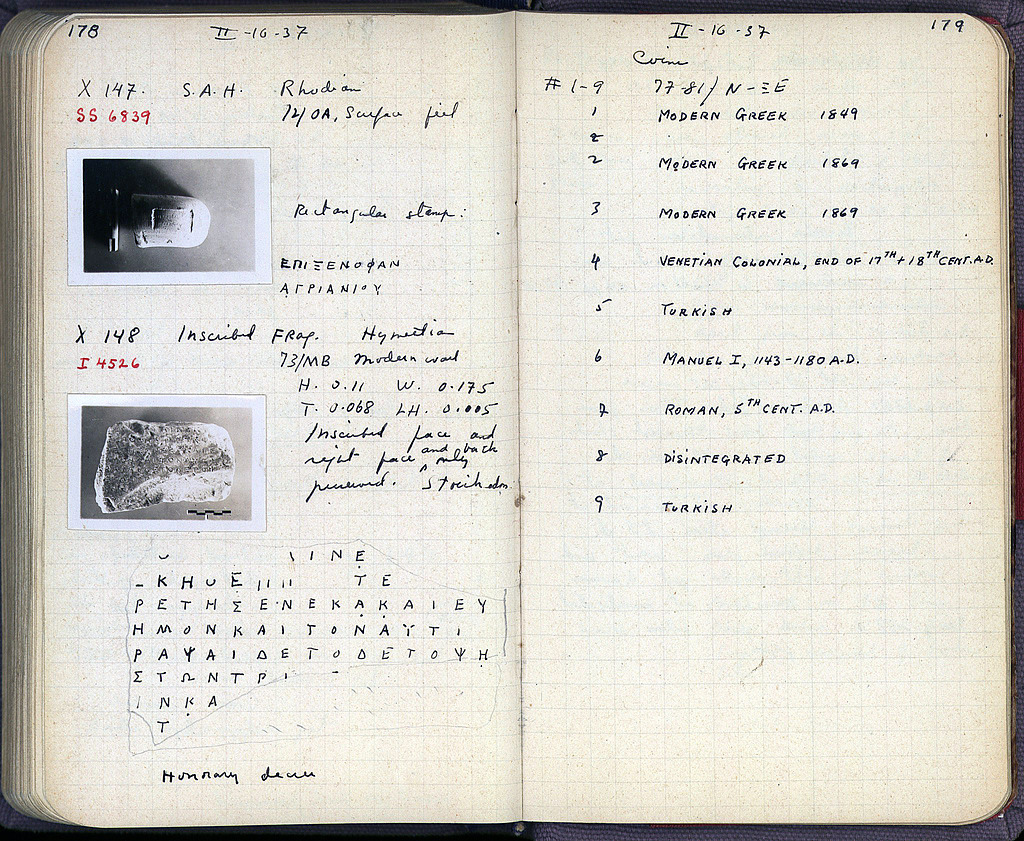 178 II-16-37
X 147. S.A.H. Rhodian
SS 6839
Surface fill
Rectangular stamp:
ΕΠΙΞΕΝΟΦΑΝ
ΑΓΡΙΑΝΙΟΥ
X 148 Inscribed Frag. Hymettian
I 4526 73/MB Modern wall
H. 0.11 W. 0.175
T. 0.068 LH. 0.005
Inscribed face and
right face and back only
preserved. Stoichedon.
ΙΝΕ
ΚΗ Ε ΤΕ
ΡΕΤΗΣΕΝΕΚΑΚΑΙΕΥ
ΗΜΟΝΚΑΙΤΟΝΑΥΤΙ
ΡΑΨΑΙΔΕΤΟΔΕΤΟΨΗ
ΣΤΩΝΤΡΙ
ΙΝΚΑ
Τ
Honorary decree
II-16-37 179
Coins
#1-9 77-81/Ν-ΞΕ
1 MODERN GREEK 1849
2
2 MODERN GREEK 1869
3 MODERN GREEK 1869
4 VENETIAN COLONIAL, END OF 17TH+18TH CENT. A.D.
5 TURKISH
6 MANUEL I, 1143-1180 A.D.
7 ROMAN, 5TH CENT. A.D.
8 DISINTEGRATED
9 TURKISH